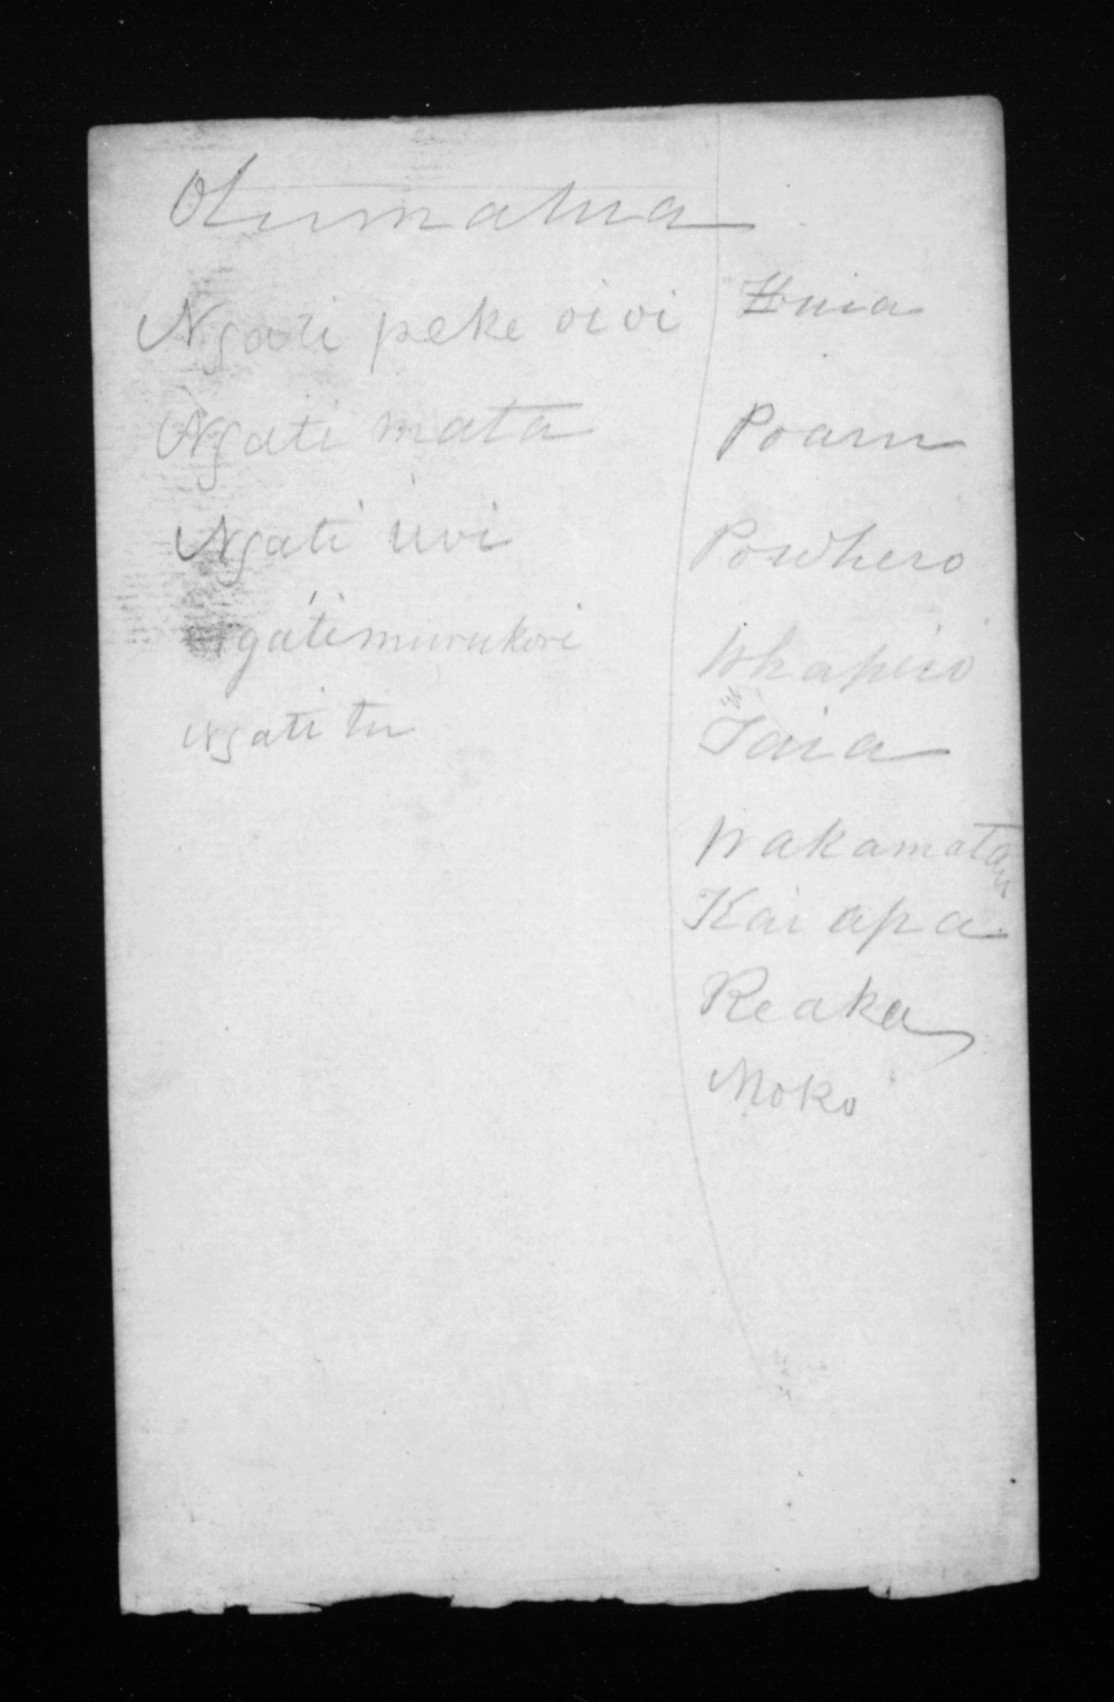 Otumatua
Ngati peke vi vi
Ngati mata
Ngati uvi
Ngatimurukori
Ngati tu
Huia
Poaru
Powhero
Whapiro
Taia
Wakamatau
Kai apa
Reaka
Moko